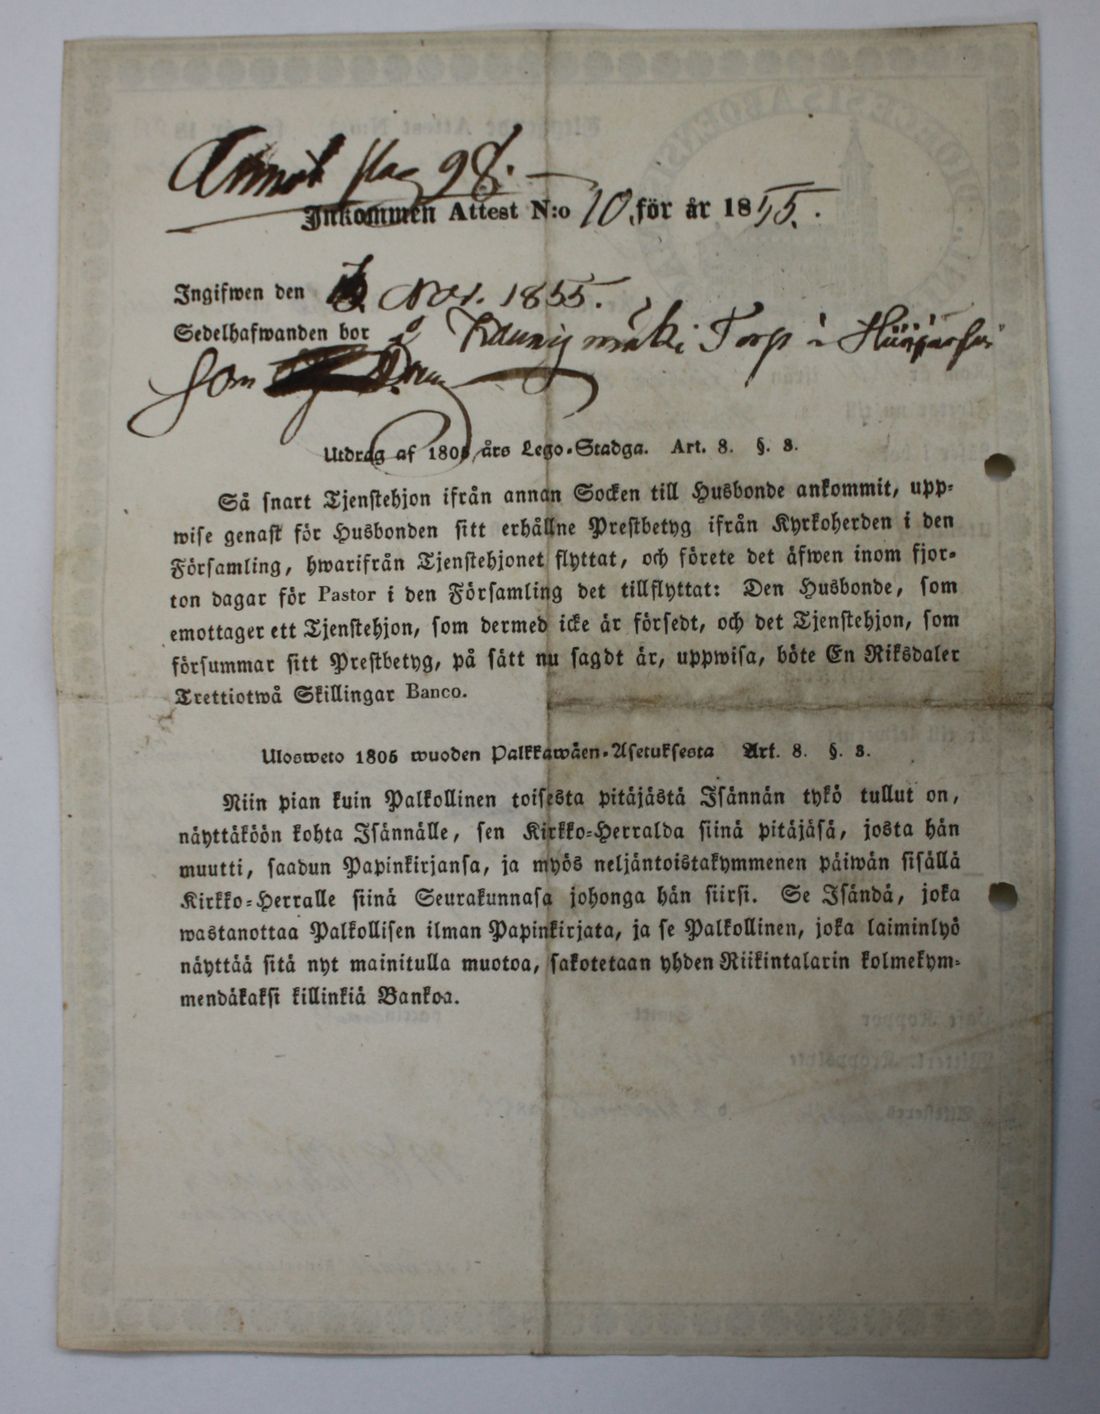 Annot pag 98.
Inkommen Attest N:o 10. för år 1855.
Ingifwen den Nov. 1855.
Sedelhafwanden bor å Torp i
som
Utdrag af 1805 års Lego-Stadga. Art. 8. §. 3.
Så snart Tjenstehjon ifrån annan Socken till Husbonde ankommit, upp-
wise genast för Husbonden sitt erhållne Prestbetyg ifrån Kyrkoherden i den
Församling, hwarifrån Tjenstehjonet flyttat, och förete det äfwen inom fjor-
ton dagar för Pastor i den Församling det tillflyttat: Den Husbonde, som
emottager ett Tjenstehjon, som dermed icke är försedt, och det Tjenstehjon, som
försummar sitt Prestbetyg, på sätt nu sagdt är, uppwisa, böte En Riksdaler
Trettiotwå Skillingar Banco.
Ulosweto 1805 wuoden Palkkawäen-Asetuksesta Art. 8. §. 3.
Niin pian kuin Palkollinen toisesta pitäjästä Isännän tykö tullut on,
näyttäköön kohta Isännälle, sen Kirkko-Herralda siinä pitäjäsä, josta hän
muutti, saadun Papinkirjansa, ja myös neljäntoistakymmenen päiwän sisällä
Kirkko-Herralle siinä Seurakunnasa johonga hän siirsi. Se Isändä, joka
wastanottaa Palkollisen ilman Papinkirjata, ja se Palkollinen, joka laiminlyö
näyttää sitä nyt mainitulla muotoa, sakotetaan yhden Riikintalarin kolmekym-
mendäkaksi killinkiä Bankoa.